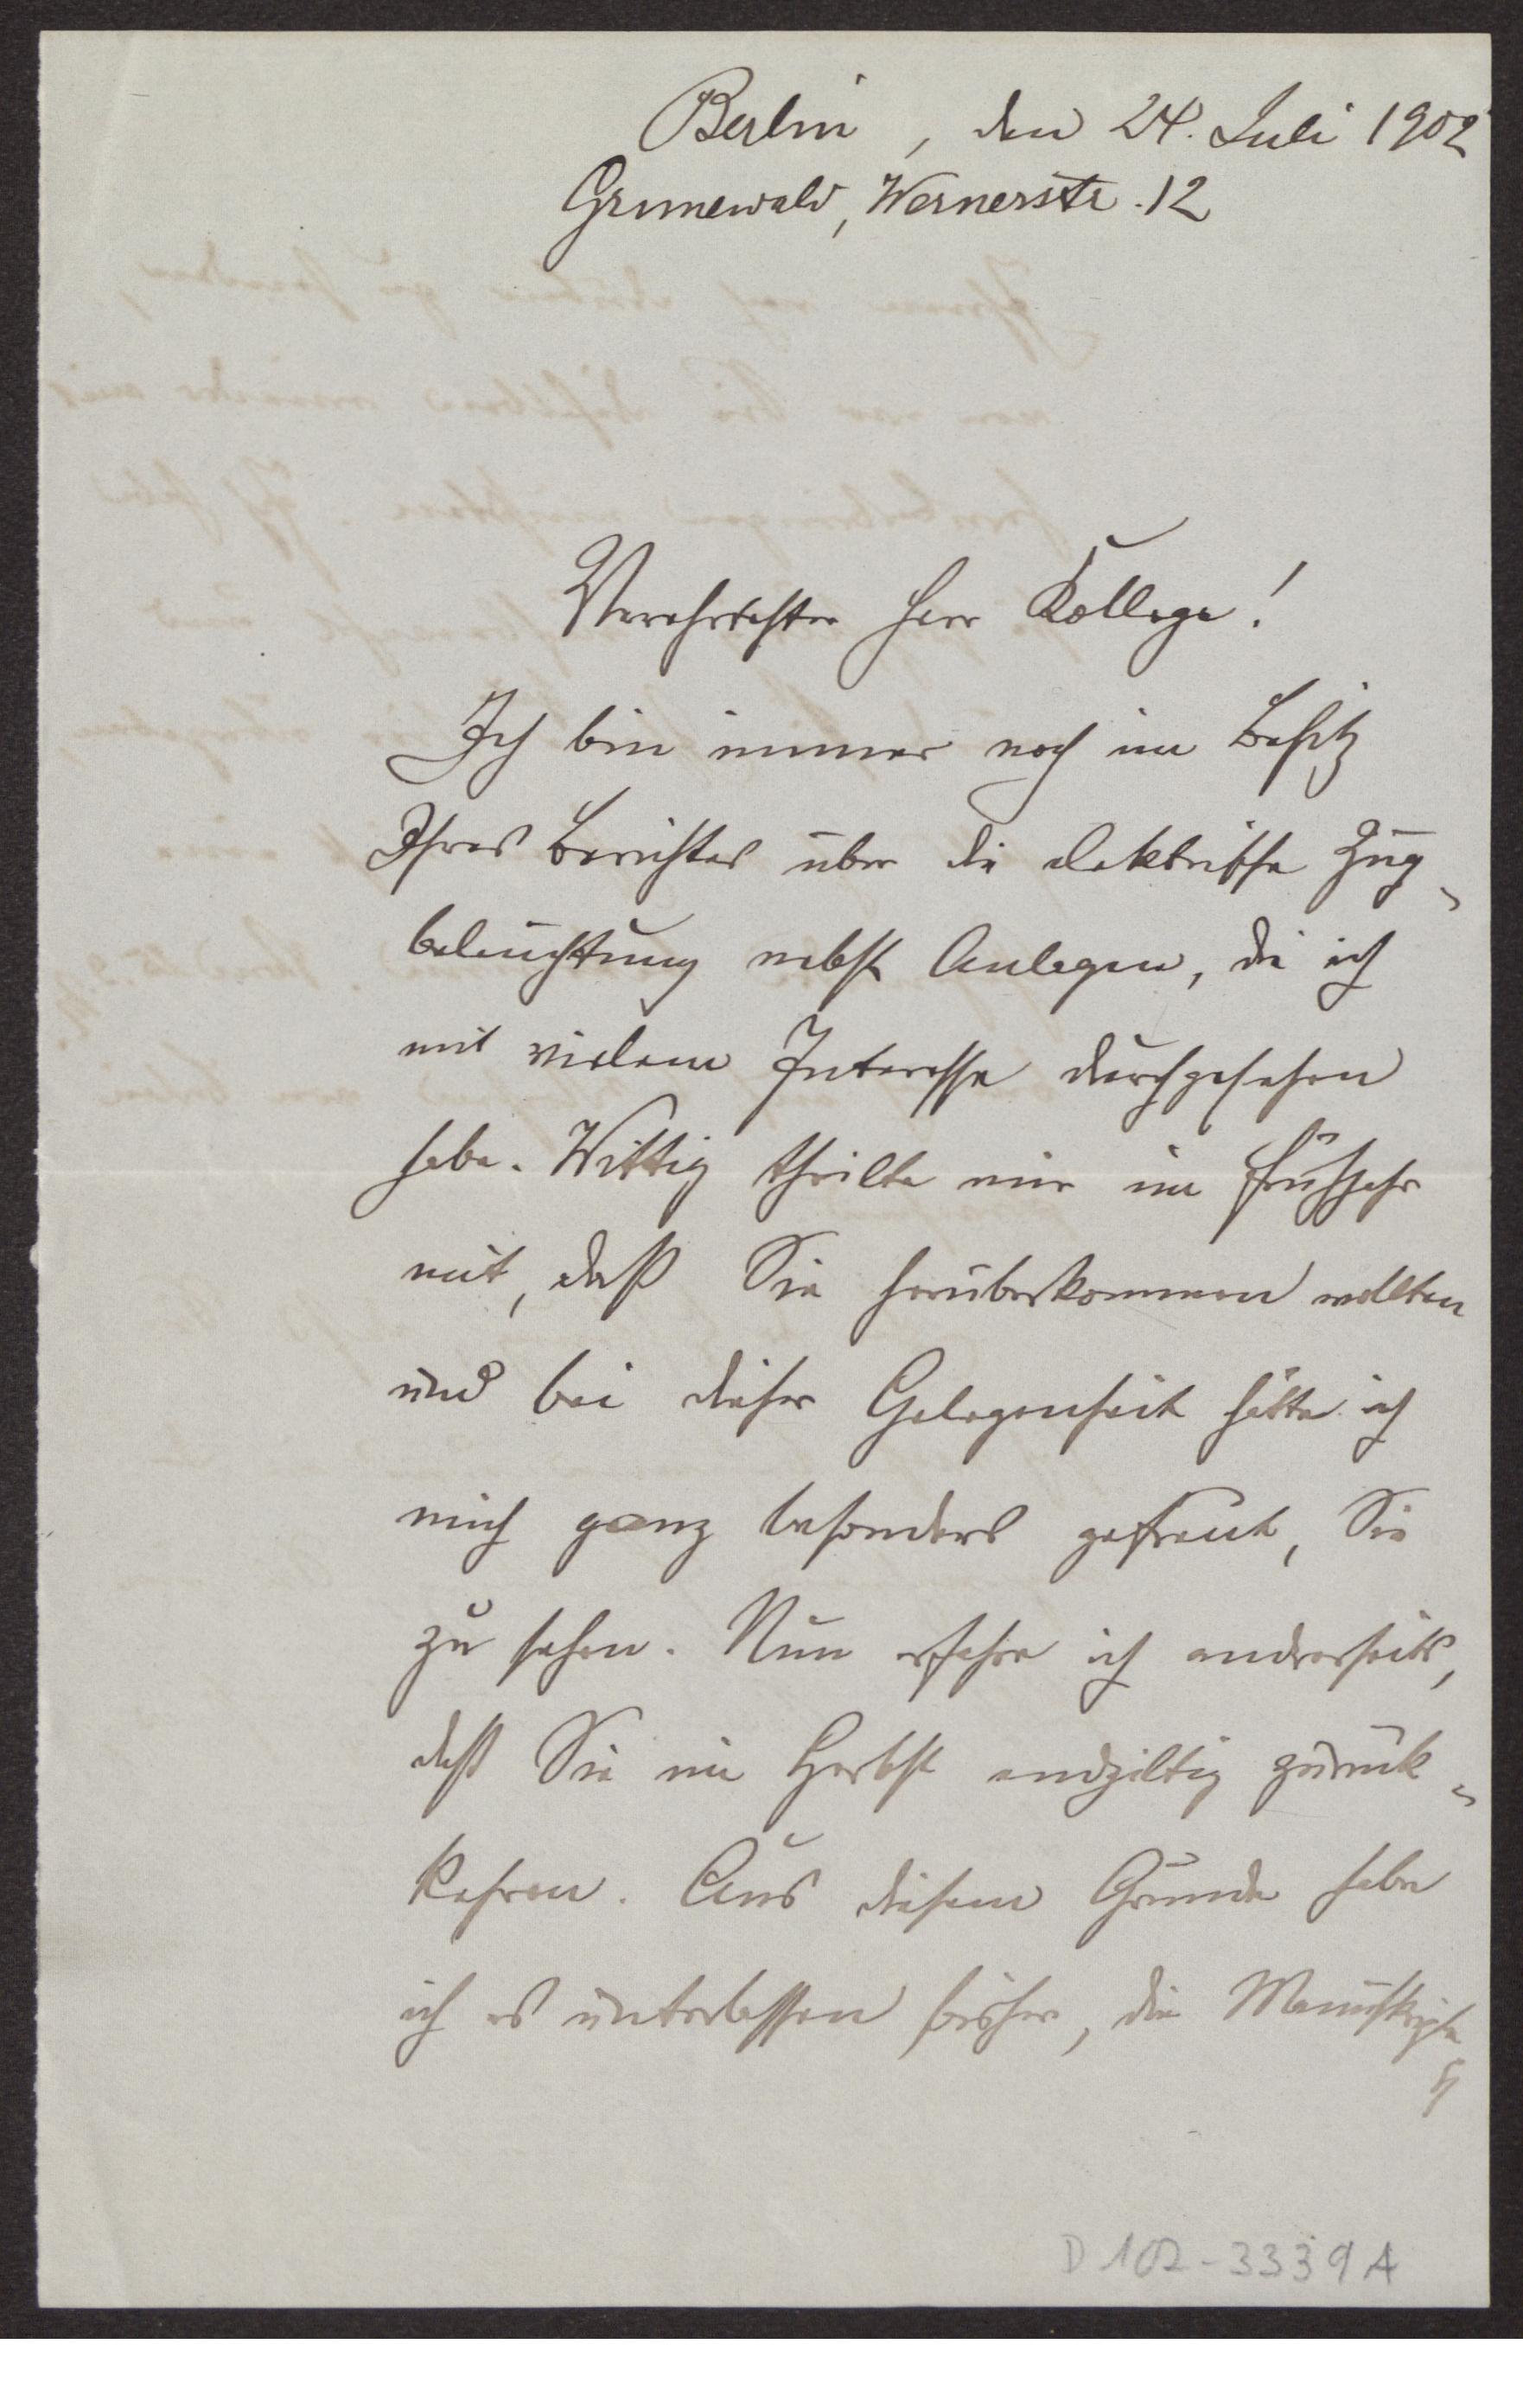 Berlin, den 24. Juli 1902
Grunewald, Wernerstr. 12
Verehrtester Herr Kollege!
Ich bin immer noch im Besitz
Ihres Berichtes über die elektrische Zug-
beleuchtung nebst Anlagen, die ich
mit vielem Interesse durchgesehen
habe. Wittig theilte mir im Frühjahr
mit, daß Sie herüberkommen wollten
und bei dieser Gelegenheit hätte ich
mich ganz besonders gefreut, Sie
zu sehen. Nun erfahre ich anderseits,
daß Sie im Herbst endgiltig zurück-
kehren. Aus diesem Grunde habe
ich es unterlassen bisher, die Manuskripte
D 102-3339 A